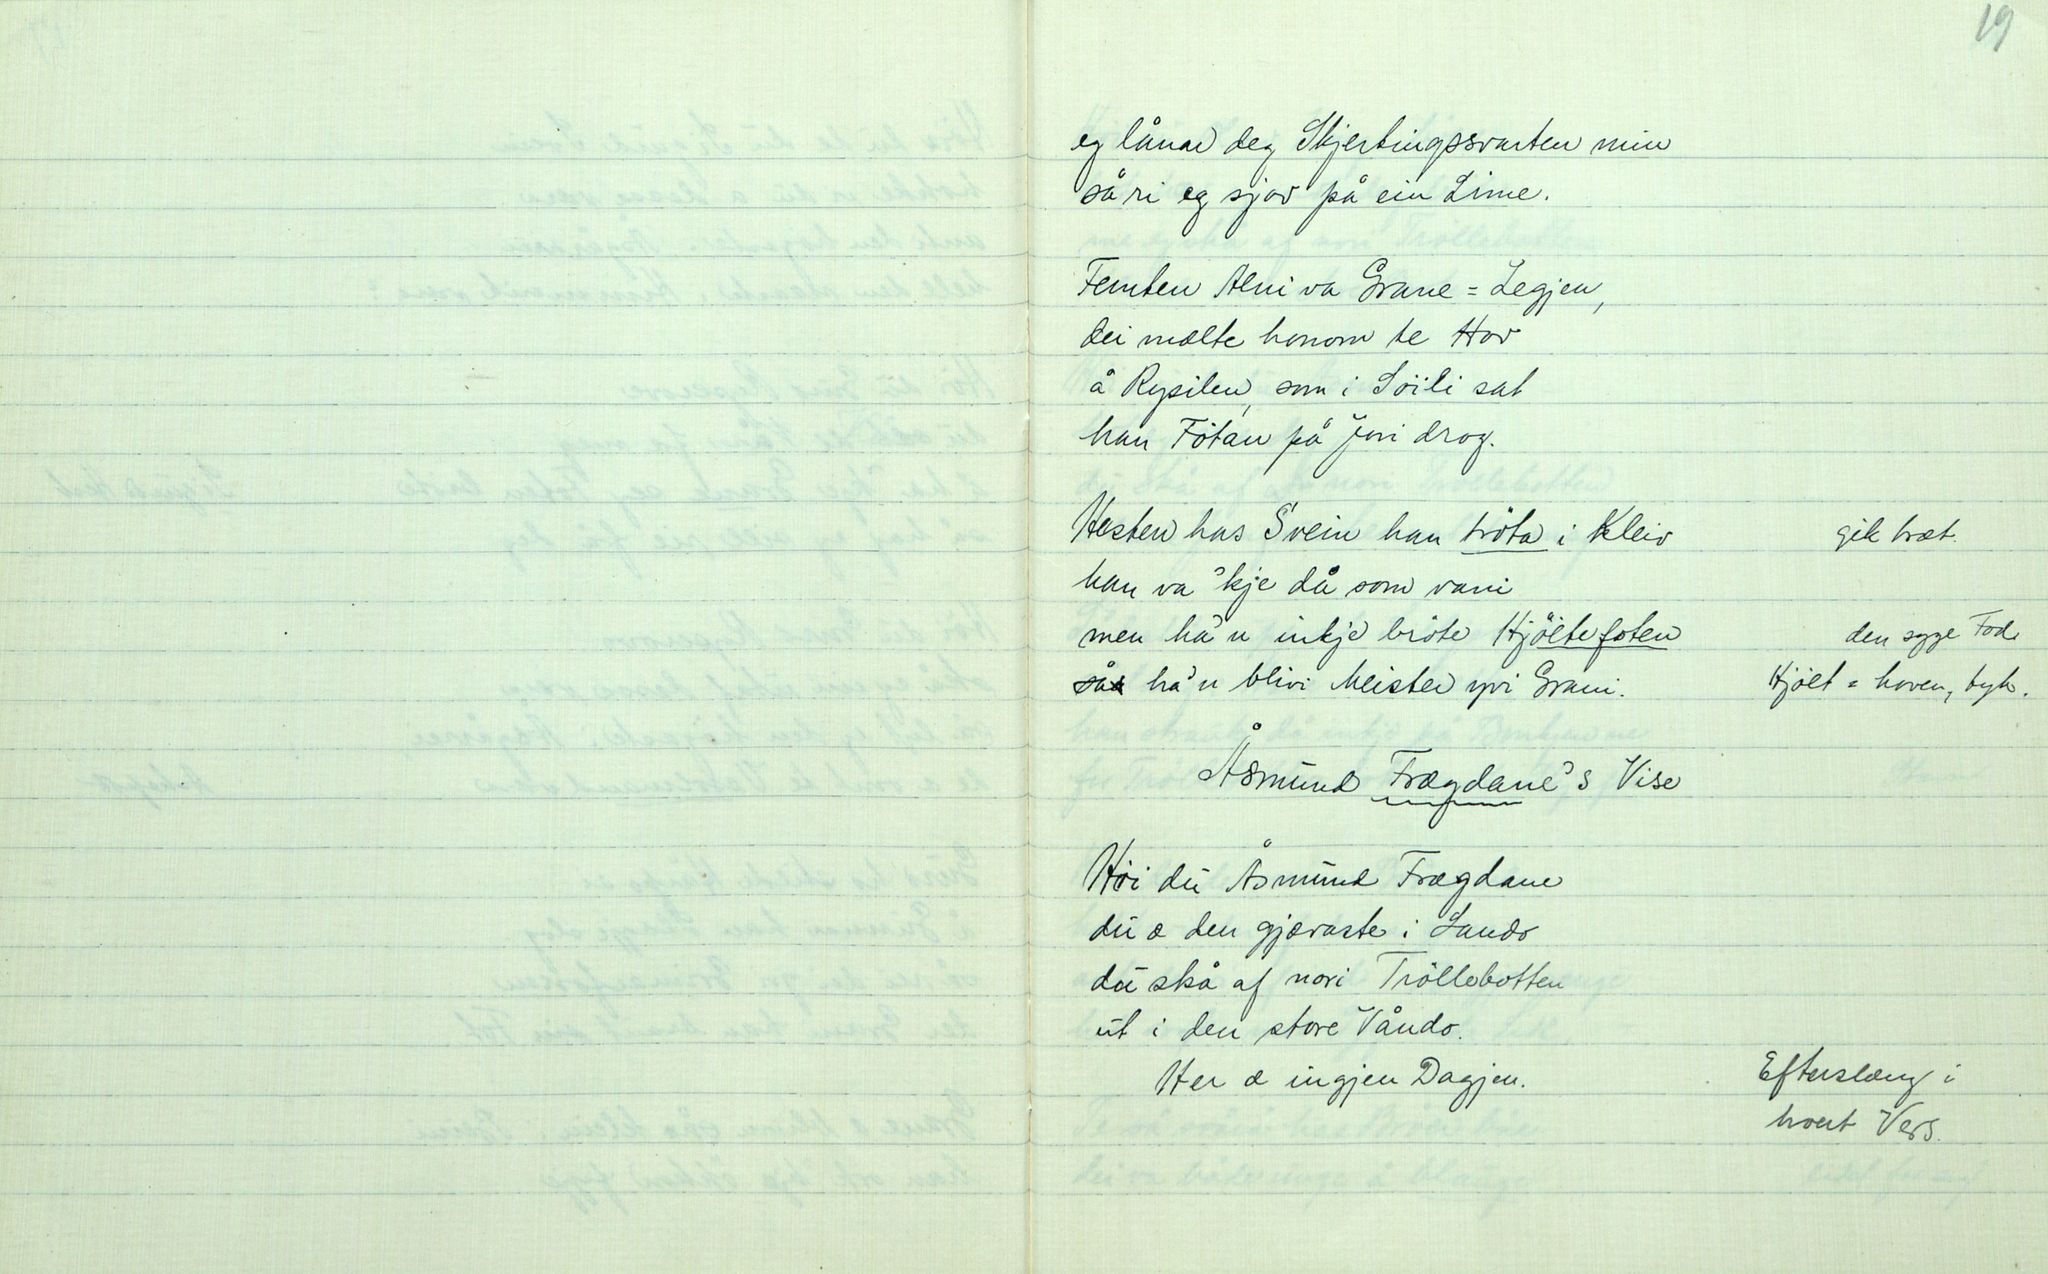 19
eg lånar deg Skjertingssvarten min
så ri eg sjov på ein Lime.
Femten Alni va Grane = Legjen,
dei mælte honom te Hov
å Rysilen, som i Söili sat
han Fötan på Jori drog.
Hesten has Svein han tröta i Kleiv gik træt.
han va 'kje då som vani
men ha'n inkje bröte Hjöltefoten den syge Fod.
så ha'n blivi Meister yvi Grani. Hjölt = hoven, tyk.
Åsmund Frægdane's Vise
Höi du Åsmund Frægdane
du æ den gjævaste i Lando
du skå af nori Tröllebotten
ut i den store Våndo.
Her æ ingjen Dagjen. Efterslæng i
hvert Vers.